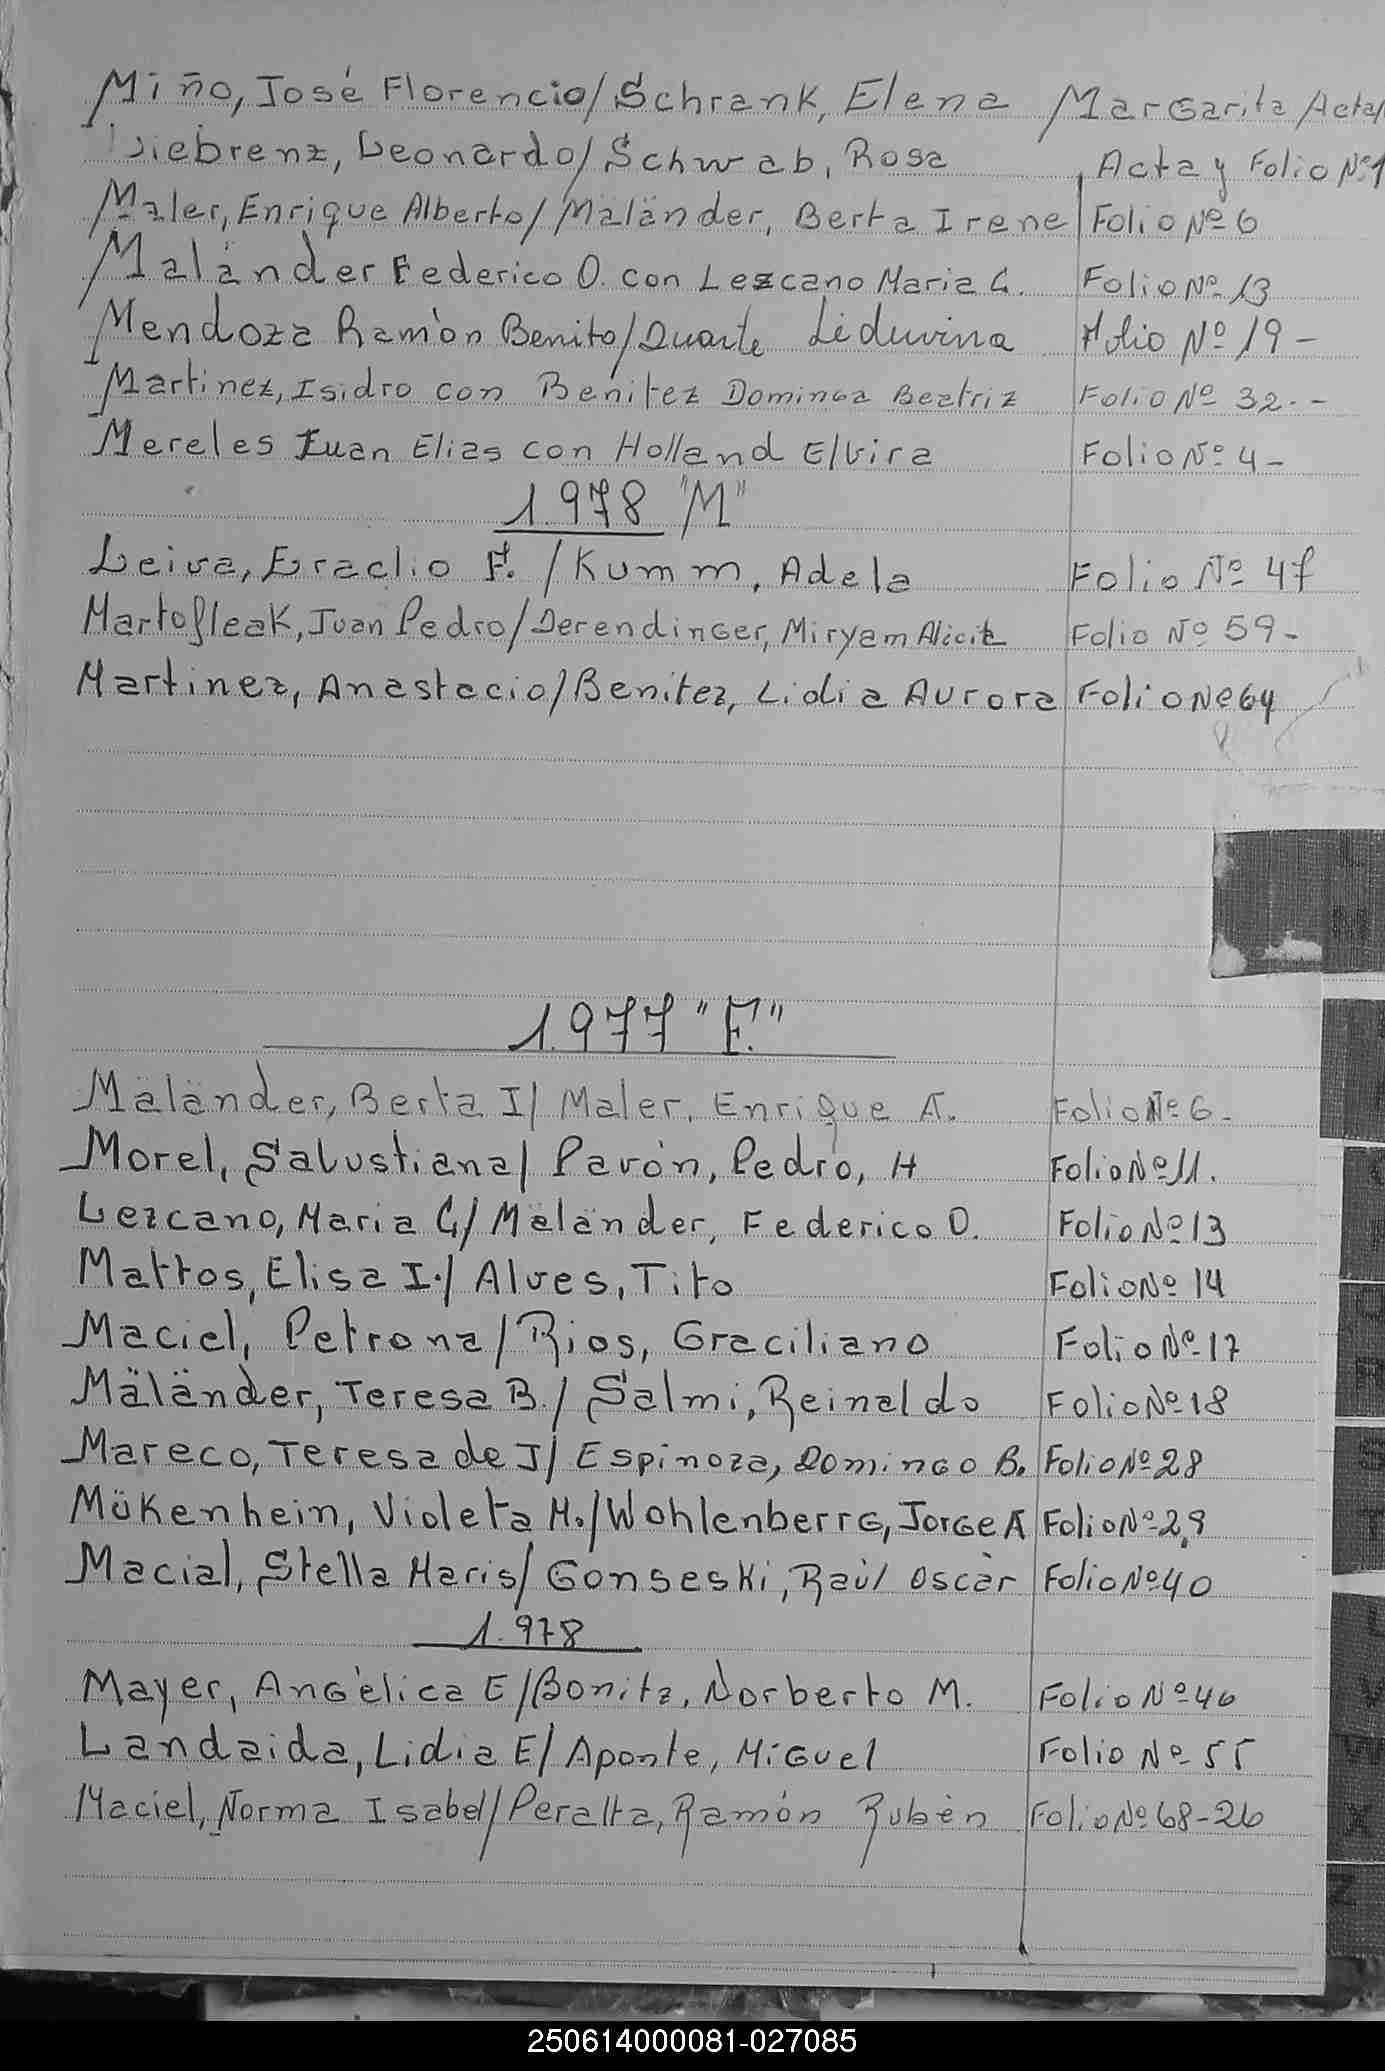 Miño, José Florencio/Schrank, Elena Margarita Acta/
Siebrenz, Leonardo/Schwab, Rosa Acta y Folio Nº1
Maler, Enrique Alberto/Maländer, Berta Irene Folio Nº 6
Maländer Federico O. con Lezcano Maria G. Folio Nº 13
Mendoza Ramón Benito/Duarte Liduvina Folio Nº 19-
Martinez, Isidro con Benitez Dominga Beatriz Folio Nº 32.-
Mereles Juan Elias con Holland Elvira Folio Nº 4-
1.978 "M"
Leiva, Eraclio F./Kumm, Adela Folio Nº 47
Martofleak, Juan Pedro/Derendinger, Miryam Alicia Folio Nº 59-
Martinez, Anastacio/Benitez, Lidia Aurora Folio Nº 64
M
1.977 "F."
Mäländer, Berta I/Maler, Enrique A. Folio Nº 6-
Morel, Salustiana/Pavón, Pedro, H Folio Nº 11.
Lezcano, Maria G/Maländer, Federico O. Folio Nº 13
Mattos, Elisa I./Alves, Tito Folio Nº 14
Maciel, Petrona/Rios, Graciliano Folio Nº 17
Mäländer, Teresa B./Salmi, Reinaldo Folio Nº 18
Mareco, Teresa de J/Espinoza, Domingo B. Folio Nº 28
Mükenhein, Violeta M./Wohlenberrg, Jorge A Folio Nº 29
Macial, Stella Maris/Gonseski, Raúl Oscar Folio Nº 40
1.978
Mayer, Angélica E/Bonita, Norberto M. Folio Nº 46
Landaida, Lidia E/Aponte, Miguel Folio Nº 55
Maciel, Norma Isabel/Peralta, Ramón Rubén Folio Nº 68-26
X
Z
250614000081-027085